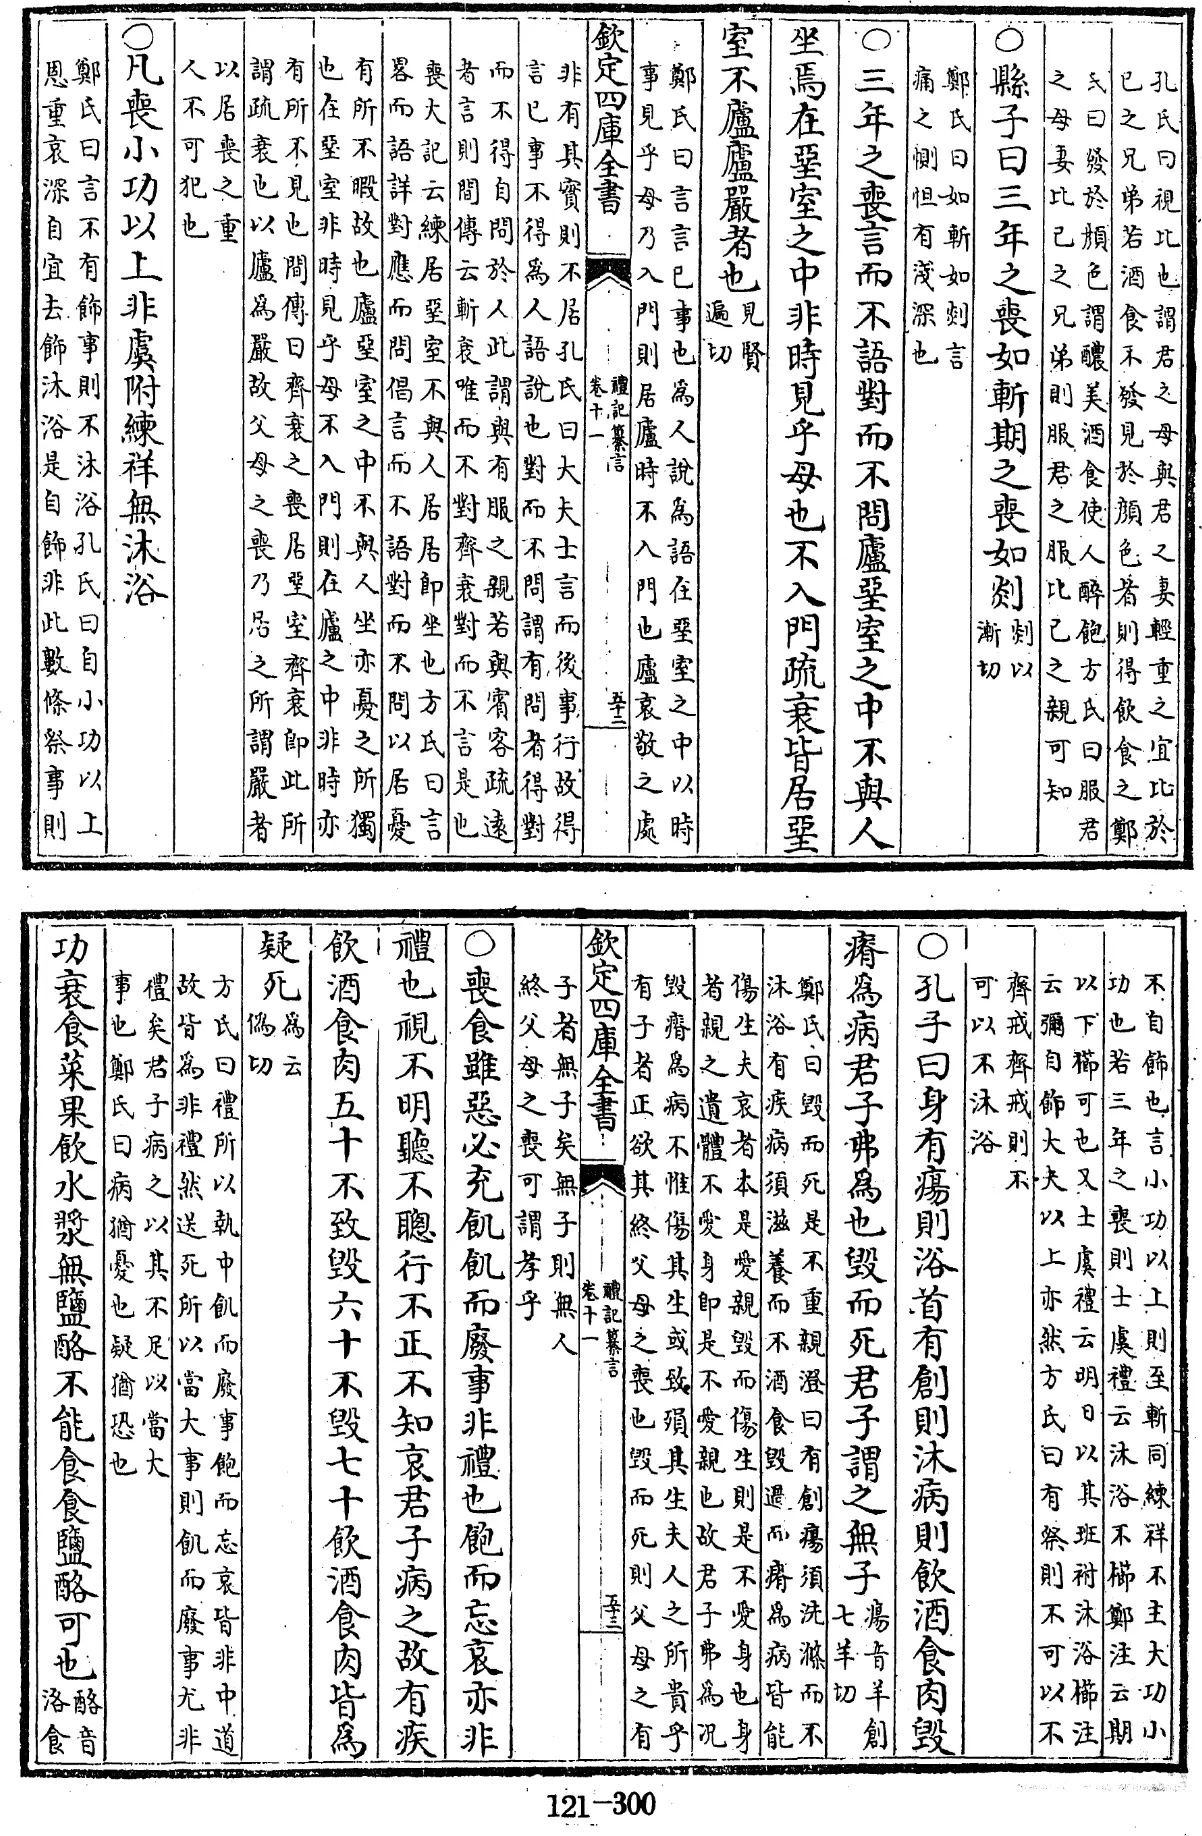 孔氏曰視比也謂君之母與君之妻輕重之宜比於
已之兄弟若酒食不發見於顔色者則得飲食之鄭
氏曰發於顔色謂醲美酒食使人醉飽方氏曰服君
之母妻比已之兄弟則服君之服比已之親可知
○縣子曰三年之喪如斬期之喪如剡剡以
漸切
鄭氏曰如斬如剡言
痛之惻怛有淺深也
○三年之喪言而不語對而不問廬堊室之中不與人
坐焉在堊室之中非時見乎母也不入門疏衰皆居堊
室不廬廬嚴者也見賢
遍切
鄭氏曰言言已事也為人說為語在堊室之中以時
事見乎母乃入門則居廬時不入門也廬哀敬之處
欽定四庫全書
禮記纂言
卷十一
五十二
非有其實則不居孔氏曰大夫士言而後事行故得
言已事不得為人語說也對而不問謂有問者得對
而不得自問於人此謂與有服之親若與賓客疏逺
者言則間傳云斬衰唯而不對齊衰對而不言是也
喪大記云練居堊室不與人居居即坐也方氏曰言
畧而語詳對應而問倡言而不語對而不問以居憂
有所不暇故也廬堊室之中不與人坐亦憂之所獨
也在堊室非時見乎母不入門則在廬之中非時亦
有所不見也間傳曰齊衰之喪居堊室齊衰即此所
謂疏衰也以廬為嚴故父母之喪乃居之所謂嚴者
以居喪之重
人不可犯也
○凡喪小功以上非虞附練祥無沐浴
鄭氏曰言不有飾事則不沐浴孔氏曰自小功以上
恩重哀深自宜去飾沐浴是自飾非此數條祭事則
不自飾也言小功以上則至斬同練祥不主大功小
功也若三年之喪則士虞禮云沐浴不櫛鄭注云期
以下櫛可也又士虞禮云明日以其班祔沐浴櫛注
云彌自飾大夫以上亦然方氏曰有祭則不可以不
齊戒齊戒則不
可以不沐浴
○孔子曰身有瘍則浴首有創則沐病則飲酒食肉毀
瘠為病君子弗為也毀而死君子謂之無子瘍音羊創
七羊切
鄭氏曰毀而死是不重親澄曰有創瘍須洗滌而不
沐浴有疾病須滋養而不酒食毀過而瘠為病皆能
傷生夫哀者本是愛親毀而傷生則是不愛身也身
者親之遺體不愛身即是不愛親也故君子弗為况
毀瘠為病不惟傷其生或致殞其生夫人之所貴乎
有子者正欲其終父母之喪也毀而死則父母之有
欽定四庫全書
禮記纂言
卷十一
五十三
子者無子矣無子則無人
終父母之喪可謂孝乎
○喪食雖惡必充飢飢而廢事非禮也飽而忘哀亦非
禮也視不明聽不聰行不正不知哀君子病之故有疾
飲酒食肉五十不致毀六十不毀七十飲酒食肉皆為
疑死為云
偽切
方氏曰禮所以執中飢而廢事飽而忘哀皆非中道
故皆為非禮然送死所以當大事則飢而廢事尤非
禮矣君子病之以其不足以當大
事也鄭氏曰病猶憂也疑猶恐也
功衰食菜果飲水漿無鹽酪不能食食鹽酪可也酪音
洛食
121-300